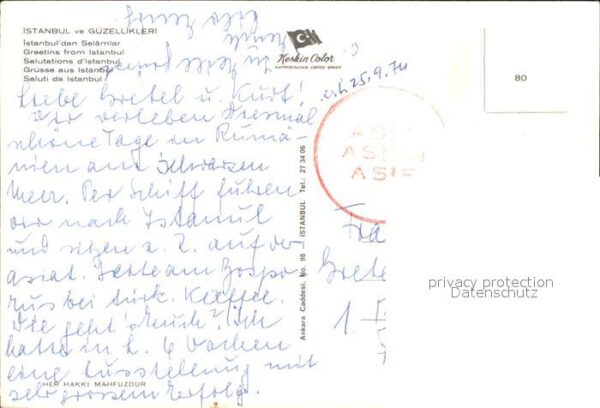 ISTANBUL ve GÜZELLİKLERİ
İstanbul'dan Selâmlar
Greetins from Istanbul
Salutations d'Istanbul
Grüsse aus Istanbul
Saluti da Istanbul
Keskin Color
80
25.9.74
Liebe Gretel u. Kurt!
Wir verleben diesmal
schöne Tage in Rumä-
nien am Schwarzen
Meer. Per Schiff fuhren
wir nach Istanbul
und sitzen z. Z. auf der
asiat. Seite am Bospo-
rus bei türk. Kaffee.
Wie geht's Euch? Ich
hatte in L. 6 Wochen
eine Ausstellung mit
sehr grossem Erfolg.
ASIEN
ASIE
Ankara Caddesi, No. 98 İSTANBUL Tel.: 27 34 06
HER HAKKI MAHFUZDUR
Grete
1.
privacy protection
Datenschutz